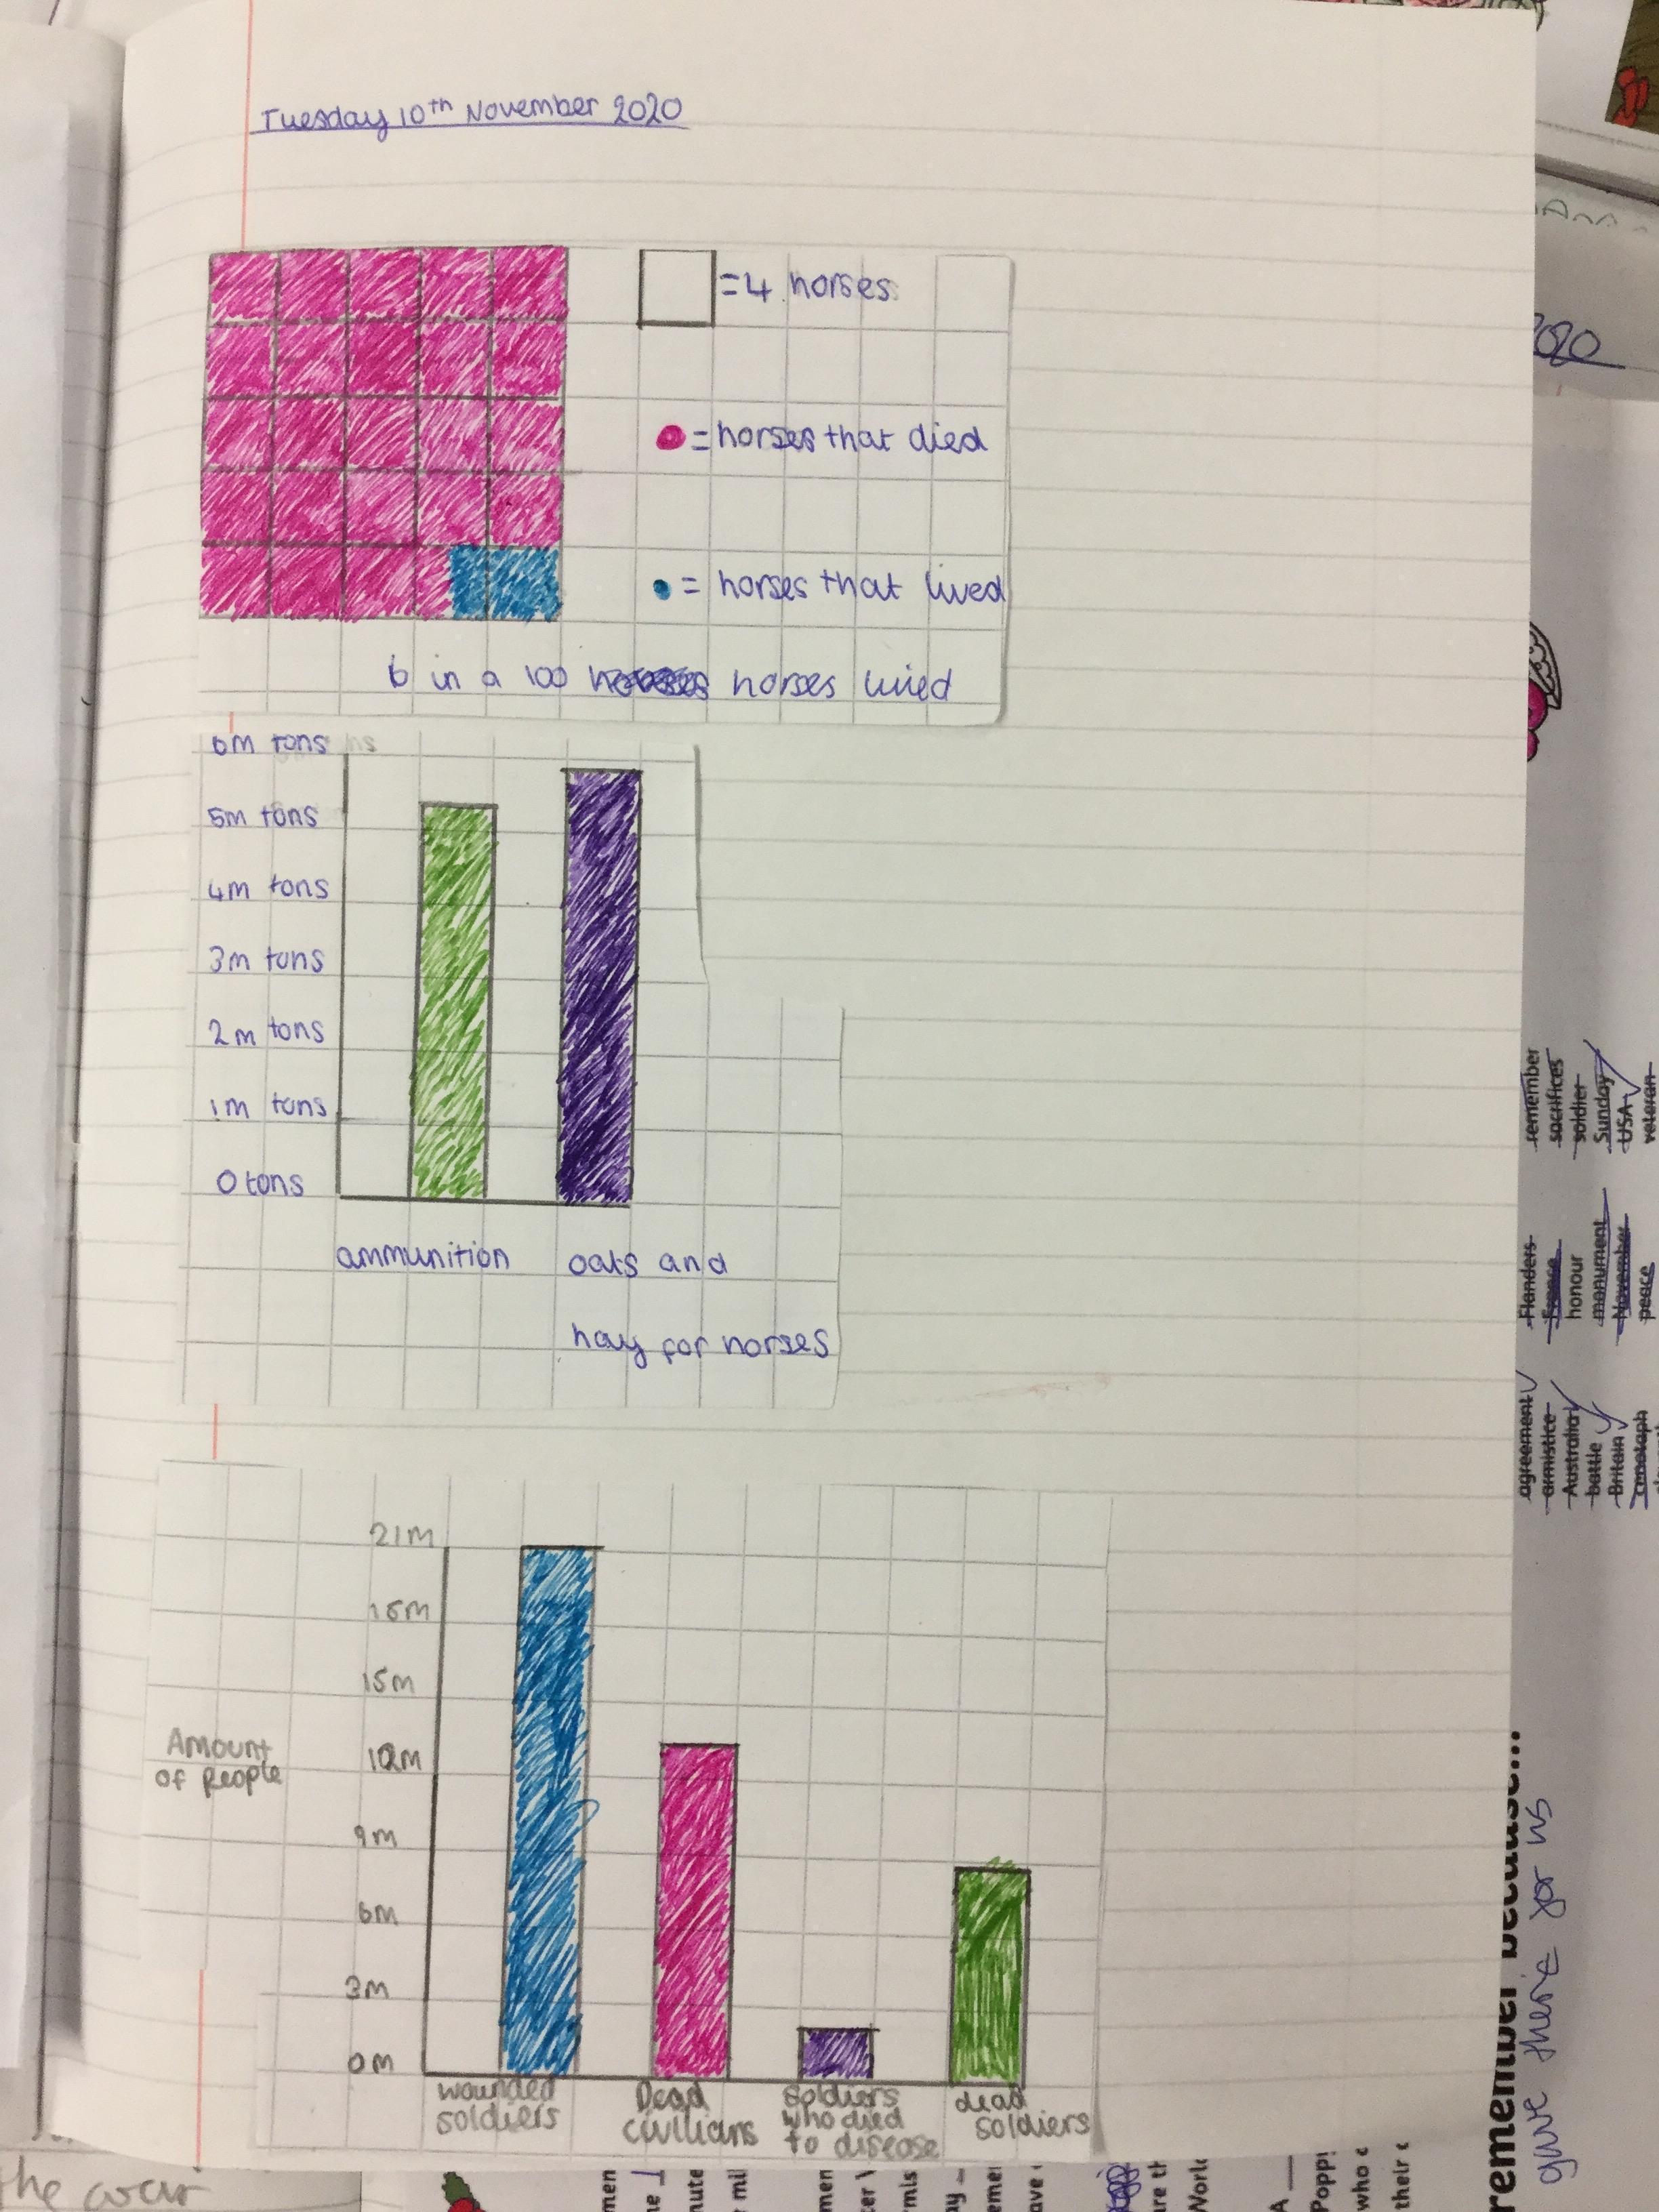 Tuesday 10th November 2020
= 4 horses
= horses that died
= horses that lived
6 in a 100 horses lived
6m tons
5m tons
4m tons
3m tons
2m tons
1m tons
0 tons
ammunition
oats and
hay for horses
21M
18M
15M
12M
9M
6M
3M
0M
Amount
of People
wounded
soldiers
Dead
civilians
soldiers
who died
to disease
dead
soldiers
2020
remember
sacrifices
soldier
Sunday
USA
veteran
Flanders
France
honour
monument
November
peace
agreement
armistice
Australia
battle
Britain
cenotaph
remember because...
gave there for us
the war